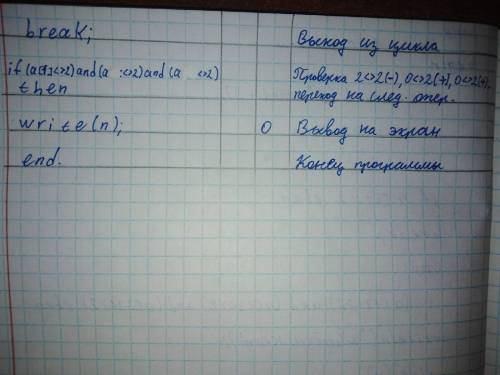 break; Выход из цикла
if (a[1]<>2)and(a :<>2)and(a <>2) Проверка 2<>2(-), 0<>2(+), 0<>2(+).
then переход на след. опер.
write(n); 0 Вывод на экран
end. Конец программы